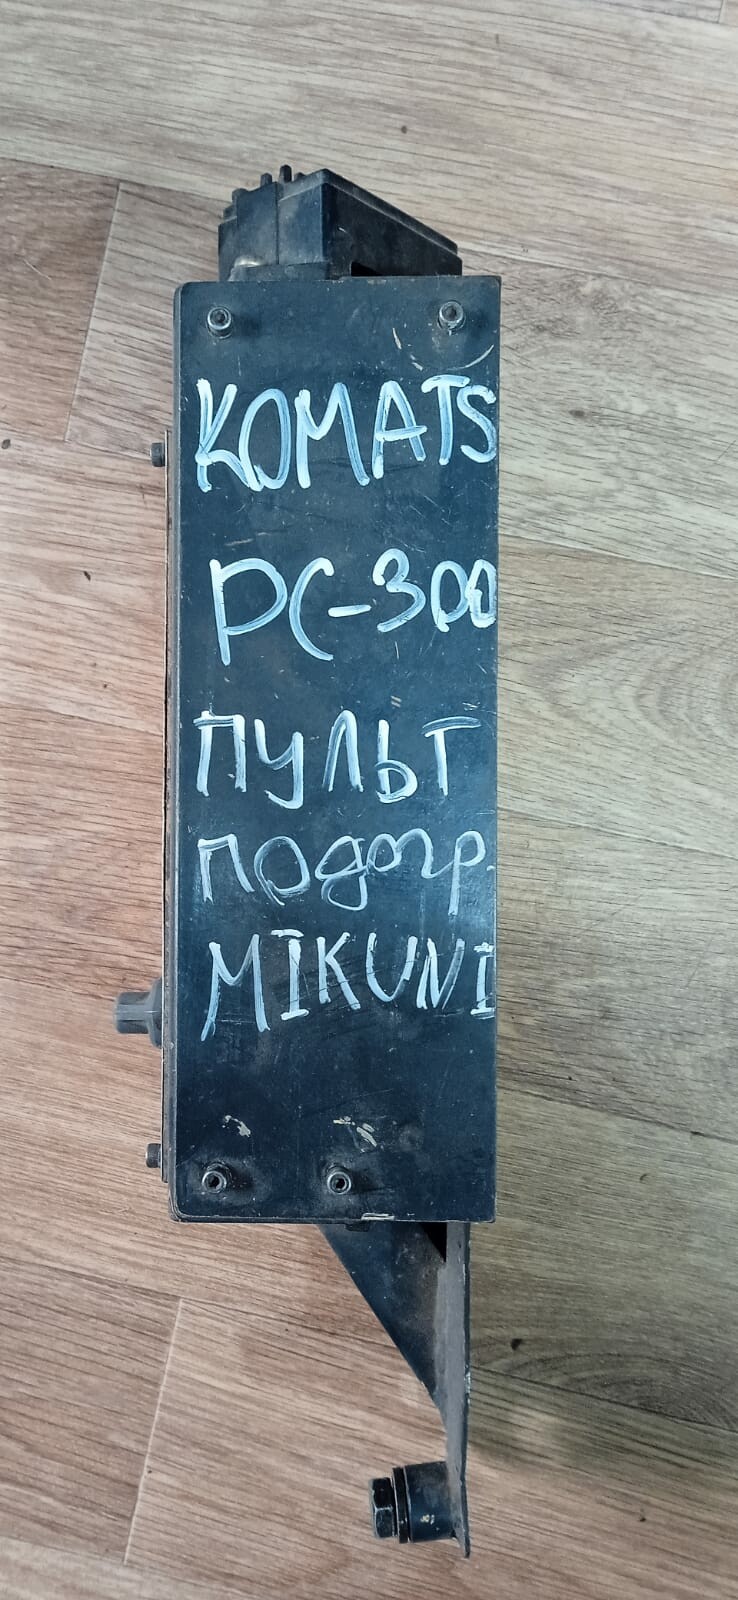 KOMATS
PC-300
ПУЛЬТ
подогр.
MIKUNI